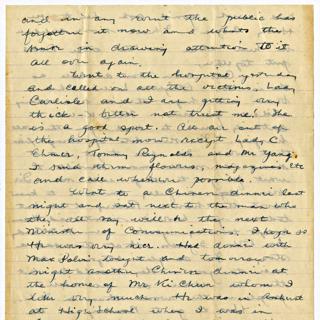 and in any event the public has
forgotten it now and what's the
use in drawing attention to it
all over again.
Went to the hospital yesterday
and called on all the victims. Lady
Carlisle and I are getting very
thick - better not trust me! She
is a good sport. All are out of
the hospital now except Lady C
Elmer, Tommy Reynolds and Mr Yang.
I send them flowers, magazines, etc
and call whenever possible.
Went to a Chinese dinner last
night and sat next to the man who
they all say will be the next
Minister of Communications. I hope so
He was very nice. Had dinner with
Max tonight and tomorrow
night another Chinese dinner at
the home of Mr Ki Chun whom I
like very much. He was in Amherst
at High School when I was in